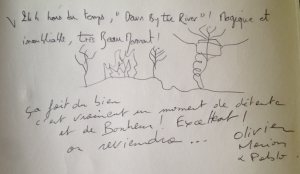 24h hors du temps, "Down By the River"! Magique et
inoubliable, très Beau Moment!
ça fait du bien
c'est vraiment un moment de détente
et de Bonheur! Excellent!
on reviendra...
Olivier
Marion
& Pablo